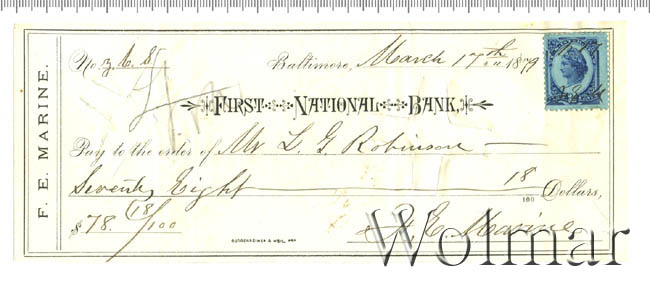 F. E. MARINE.
No. 368 Baltimore, March 17th 1879
FIRST NATIONAL BANK.
Pay to the order of Mr L. G. Robinson
Seventy Eight 18/100 Dollars,
$ 78. 18/100 F. E. Marine
GUGGENHEIMER & WEIL,
Wolmar